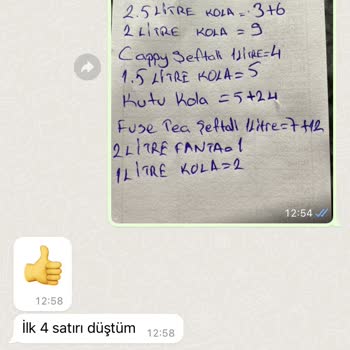 2.5 LİTRE KOLA = 3+6
2 LİTRE KOLA = 9
Cappy Şeftali 1LİTRE=4
1.5 LİTRE KOLA = 5
Kutu Kola = 5+24
Fuse Tea Şeftali 1Litre=7+12
2LİTRE FANTA=1
1LİTRE KOLA=2
12:54
12:58
İlk 4 satırı düştüm 12:58